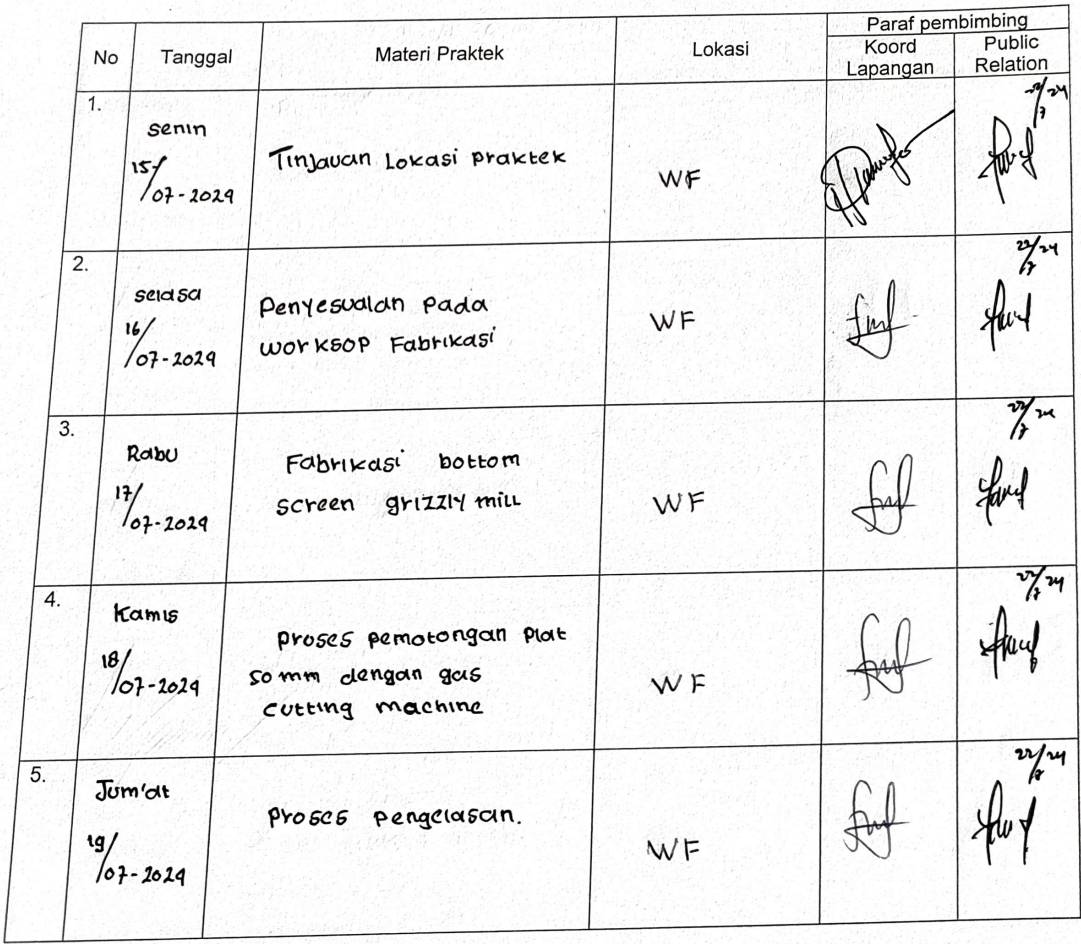 No Tanggal Materi Praktek Lokasi Paraf pembimbing
Koord Lapangan Public Relation
1. Senin
15/07-2024 Tinjauan Lokasi Praktek WF 22/7 24
2. Selasa
16/07-2024 Penyesuaian Pada
worksop Fabrikasi WF 22/7 24
3. Rabu
17/07-2024 Fabrikasi bottom
screen grizzly mill WF 22/7 24
4. Kamis
18/07-2024 Proses pemotongan Plat
50 mm dengan gas
cutting machine WF 22/7 24
5. Jum'at
19/07-2024 Proses pengelasan. WF 22/7 24